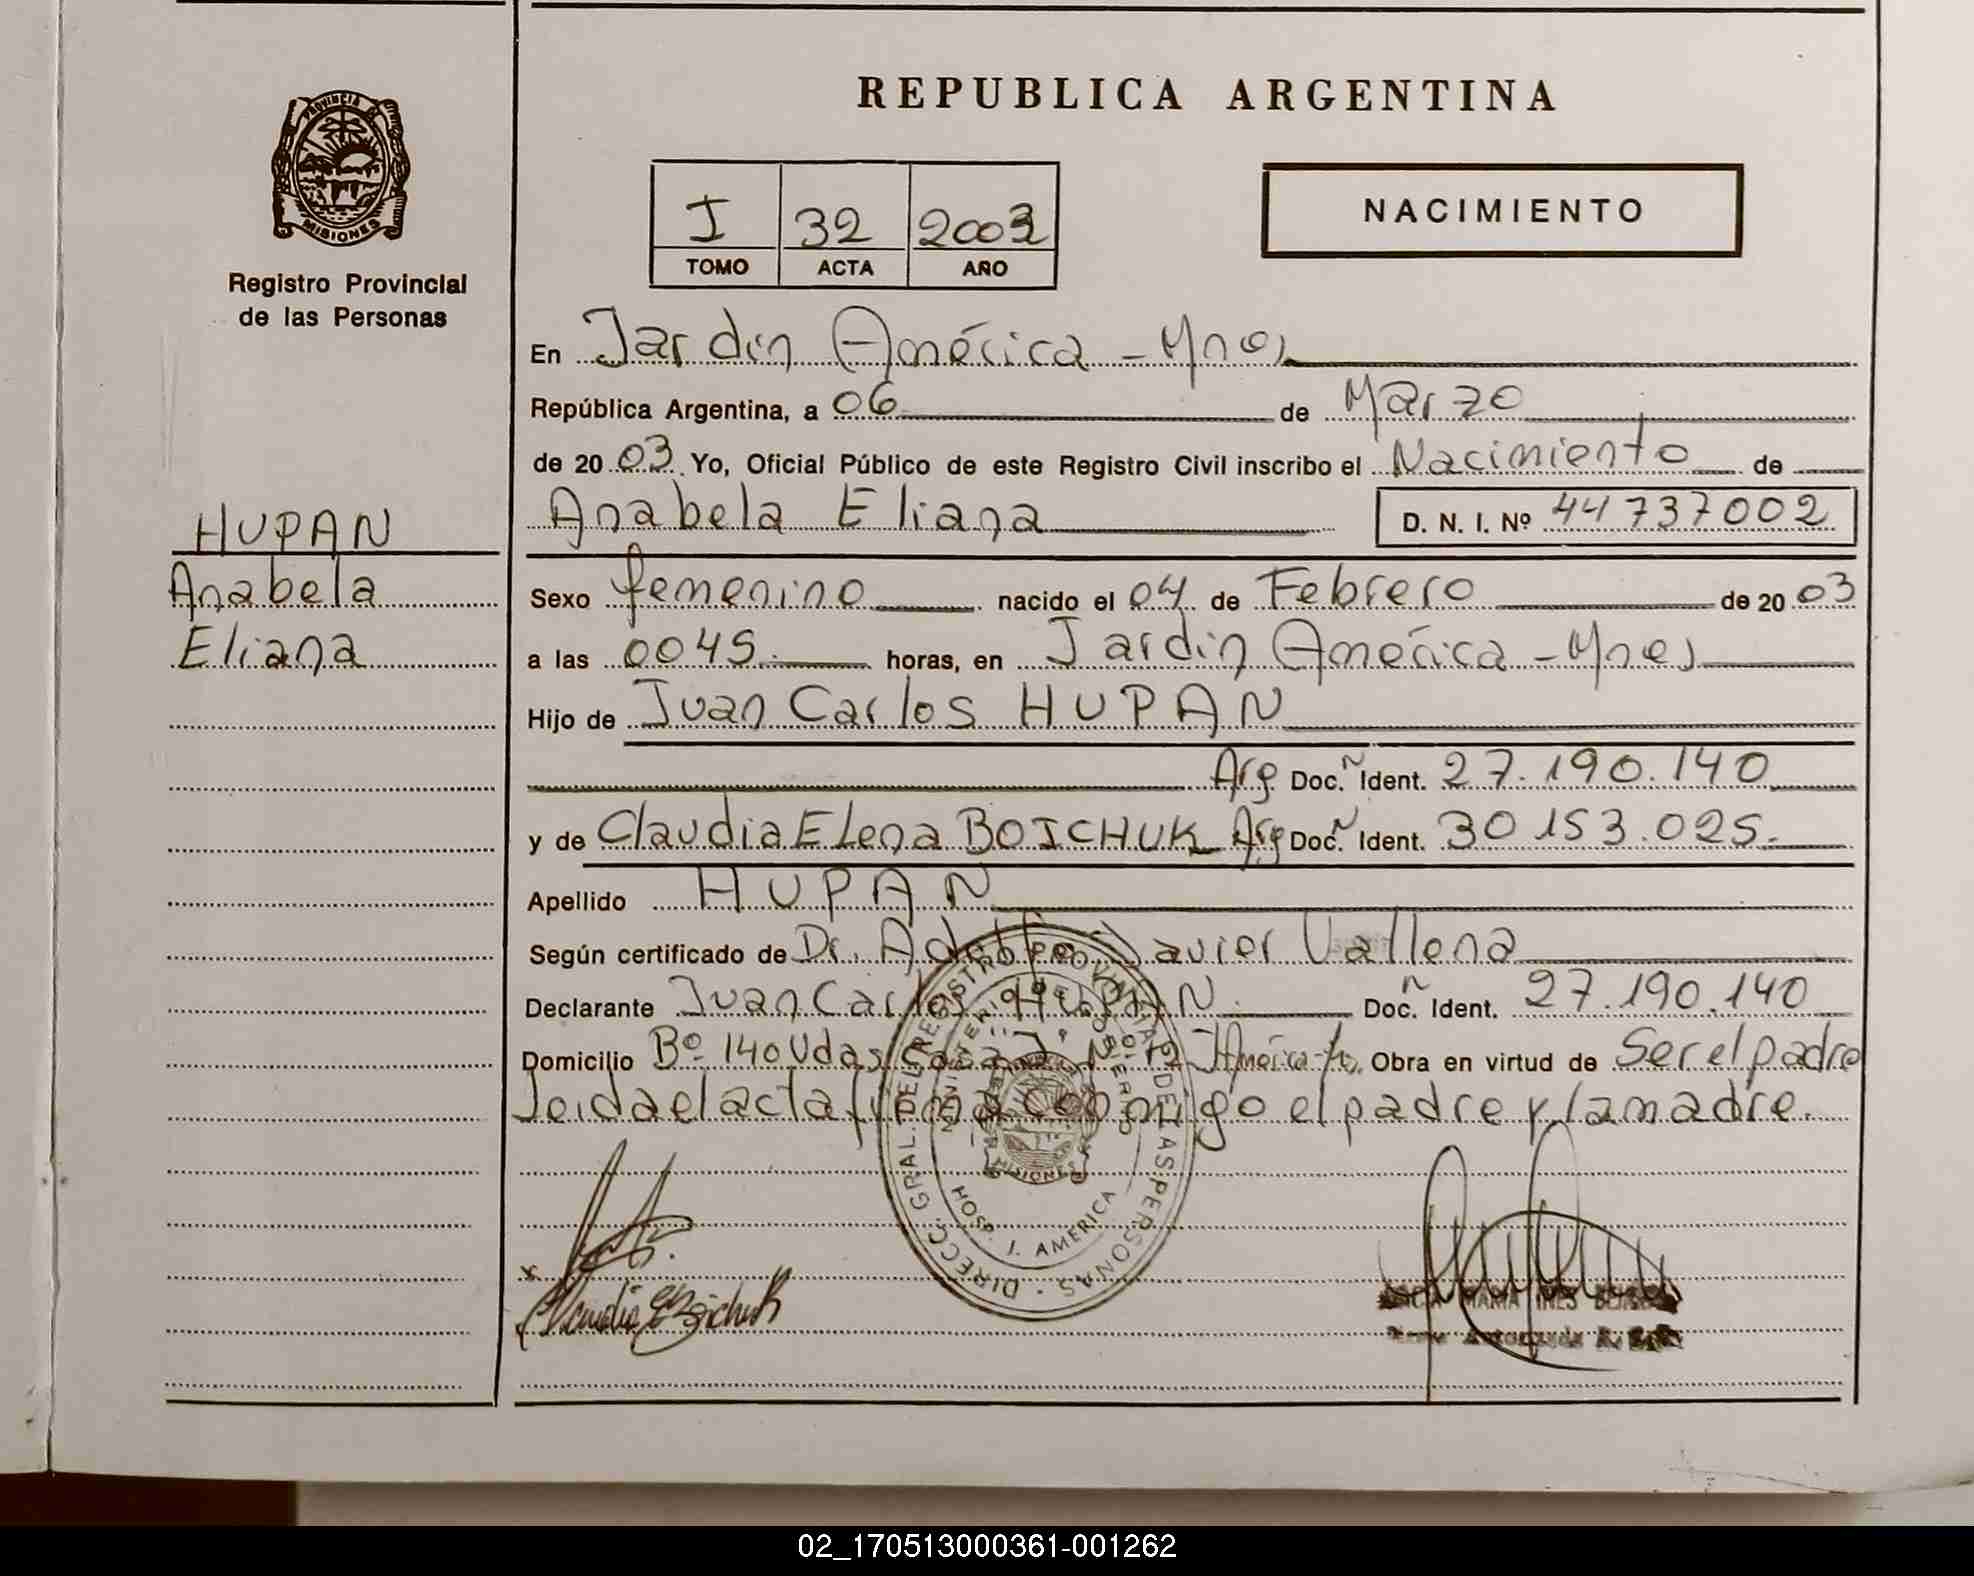 REPUBLICA ARGENTINA
PROVINCIA
MISIONES
Registro Provincial
de las Personas
I 32 2003
TOMO ACTA AÑO
NACIMIENTO
En Jardin América - Mnes
República Argentina, a 06 de Marzo
de 2003 Yo, Oficial Público de este Registro Civil inscribo el Nacimiento de
HUPAN
Anabela
Eliana
Anabela Eliana D. N. I. Nº 44737002
Sexo femenino nacido el 04 de Febrero de 2003
a las 0045. horas, en Jardin América - Mnes
Hijo de Juan Carlos HUPAN
Arg Doc. Ident. 27.190.140
y de Claudia Elena BOICHUK Arg Doc. Ident. 30 153.025.
Apellido HUPAN
Según certificado de Dr. Adolfo Javier Vallena
Declarante Juan Carlos HUPAN. Doc. Ident. 27.190.140
Domicilio Bº 140 Vdas Casa América Obra en virtud de Ser el padre
Leida el acta firma conmigo el padre y la madre.
DIRECC. GRAL. DEL REGISTRO PROVINCIAL DE LAS PERSONAS
MINISTERIO DE GOBIERNO
MISIONES
HOSP. J. AMERICA
x
Claudia E Boichuk
MARIA INES
02_170513000361-001262